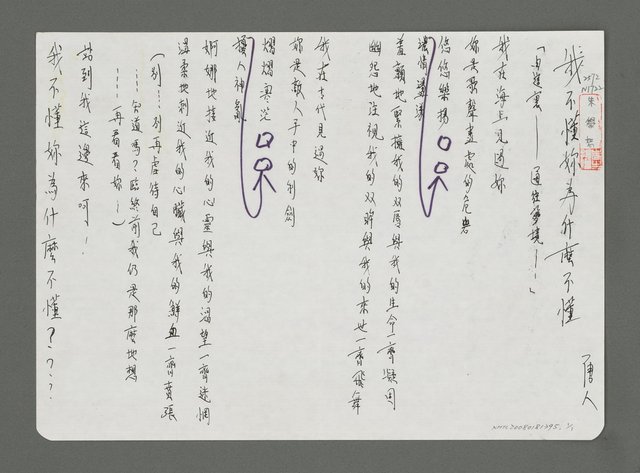 我不懂妳為什麼不懂
唐人
「由這裏——通往夢境——」
我在海上見過妳
妳是歌聲盡處的危巖
悠悠樂揚
濃情
羞赧地緊擁我的双唇與我的生命一齊凝固
幽怨地注視我的双眸與我的來世一齊飛舞
我在古代見過妳
妳是敵人手中的利劍
熠熠寒光
攝人神氣
婀娜地接近我的心靈與我的渴望一齊迷惘
溫柔地刺近我的心臟與我的鮮血一齊賁張
(別……別再虐待自己
……知道嗎?臨終前我仍是那麼地想
……再看看妳…)
站到我這邊來呵!
我不懂妳為什麼不懂????
NMTL20080181395. 1/1